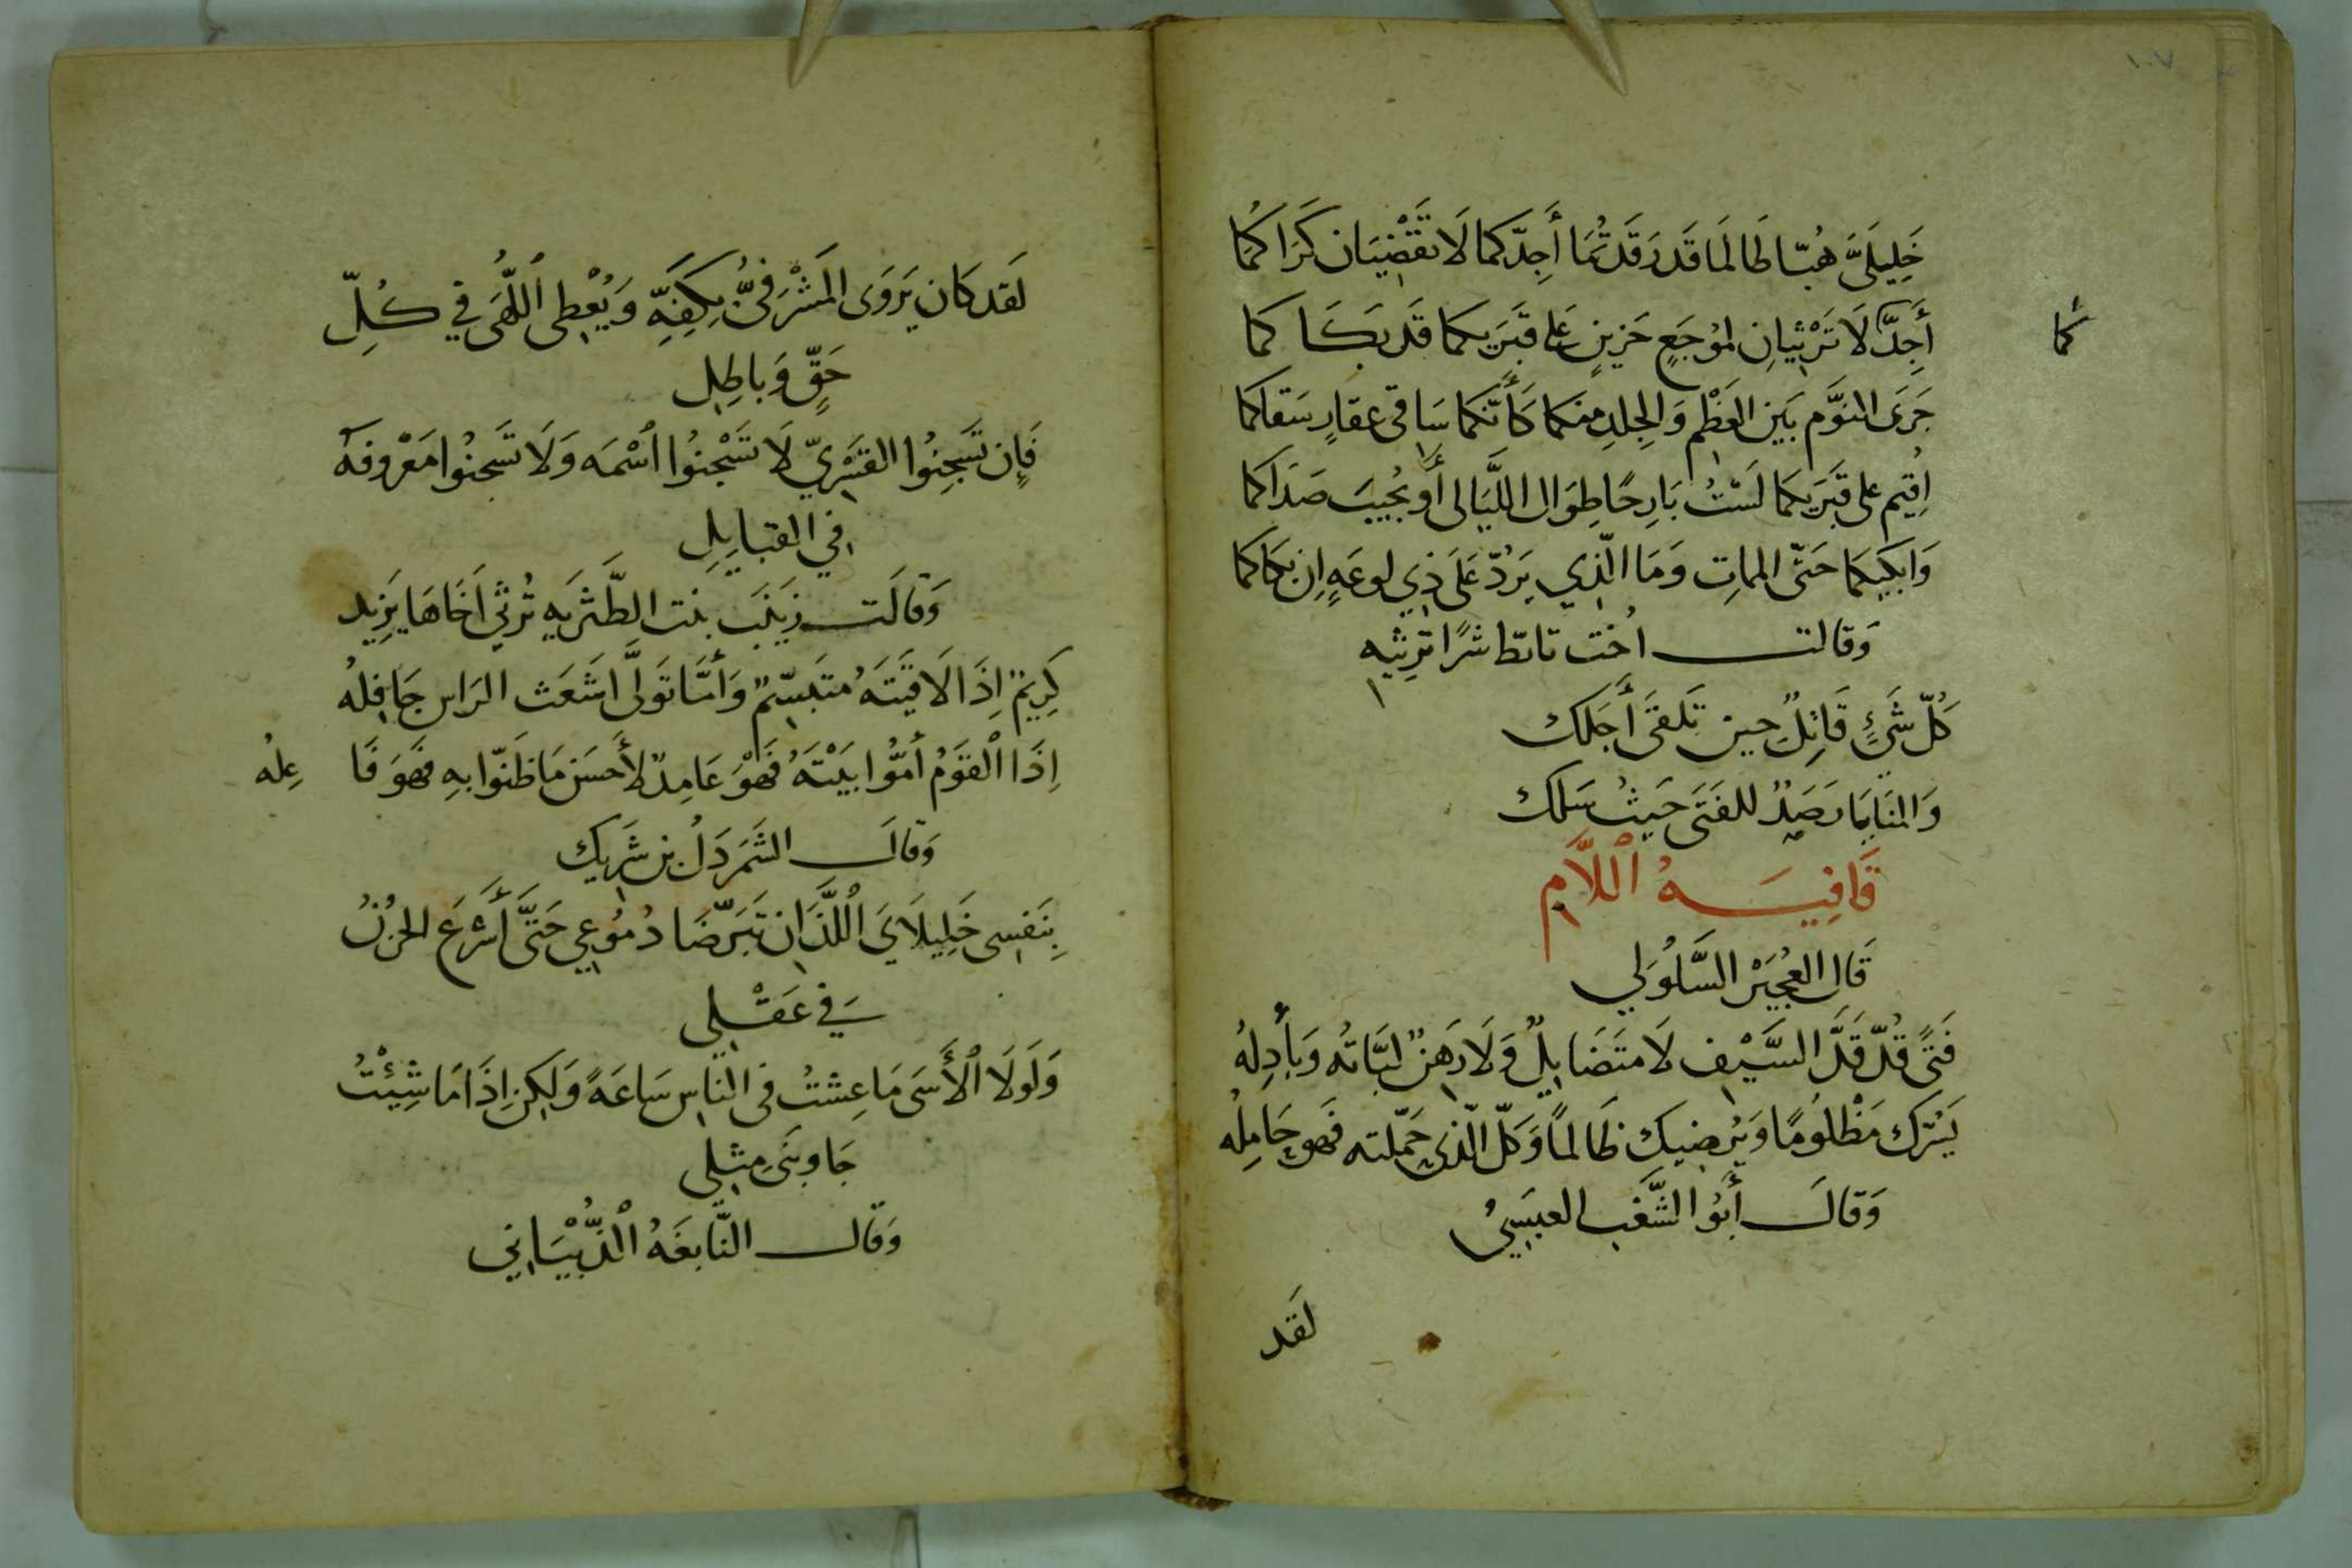 ١٠٧
خَلِيلَيَّ هُبّا طَالَمَا قَد رَقَدتُمَا أَجِدّكما لَا تَقْضِيَان كَرَاكُما
أَجِدَّ لَا تَرْثِيانِ لموُجَعٍ حَزِينٍ عَلى قَبَريكما قَد بَكَاكما
كُما
جَرَى النوَّم بَين العَظْمِ وَالجِلدِ منكما كَأَنّكما سَاقى عقارٍ سَقاكما
اُقيم على قَبَريكمَا لَسْتُ بَارِحًا طِوَال اللَّيَالى أَو يُجيبَ صَدَاكما
وَابكيكمَا حَتّى المماتِ وَمَا الّذي يَردّ عَلَى ذِي لوعَهٍ اِن بَكاكما
وَقالت اُخت تابطّ شرًا ترثيه
كُلّ شَيءٍ قَاتِلٌ حين تَلقَى أَجَلَك
وَالمنَايَا رَصَدٌ للفَتَى حَيثُ سَلَك
قَافِيَهُ ٱللَّام
قَال العُجَيْر السَّلُولي
فَتًى قُدّ قَدَّ السَّيْف لَا متَضَايِلٌ وَلَا رَهَنٌ لبَّاتُه وَبأدِلهُ
يَسُرّك مَظْلُومًا وَيُرضيك ظَالمًا وَكلّ الّذى حَمَّلته فَهو حَامِلُه
وَقالَ أَبُو الشَّغْب العبَسِيُ
لَقد
لَقد كَان يَروَى المَشْرَفيُّ بِكَفِهِّ وَيُعْطِى ٱللُّهَى في كُلِّ
حَقٍّ وَباطِلِ
فَإِن تَسَجِنُوا القَسْرِيّ لَا تَسْجنُوا ٱسْمَه وَلَا تَسَجنُوا مَعْروفهَ
في القبايِلِ
وَقالَت زيَنَب بنت الطَّثريَه تُرثي اَخَاهَا يَزِيد
كَرِيمٌ اِذَا لَاقَيتَهُ متَبسّمٌ وَأمّا تَوَلَّى اَشَعَث الرَاس جَافِلهُ
اِذَا ٱلْقَوَمُ أَمُّوا بَيْتَهُ فَهْوَ عَامِدٌ لأَحسَن مَا ظَنّوا بهِ فَهوَ فَاعِلهُ
وَقالَ الشَمَردَلُ بن شَرِيك
بِنَفسِى خَلِيلَايَ ٱللَّذَان تَبَرّضَا دُمُوعِي حَتىَّ أَسْرَعَ الحزُنُ
في عَقْلِي
وَلَولَا ٱلأَسَى مَا عِشتُ فى النَاسِ سَاعَهً وَلكِن اِذَا مَا شِئْتُ
جَاوبَنَى مِثلِي
وَقال النَّابغَهُ ٱلذُّبْيَانِي